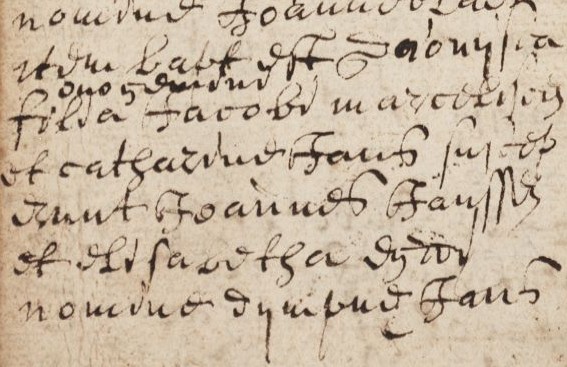 nomine Joannes
item bapt est Dionysia
filia Jacobi marcelissen
et catharine Jans suscep
erunt Joannes Janssen
et elisabetha
nomine dympne Jans